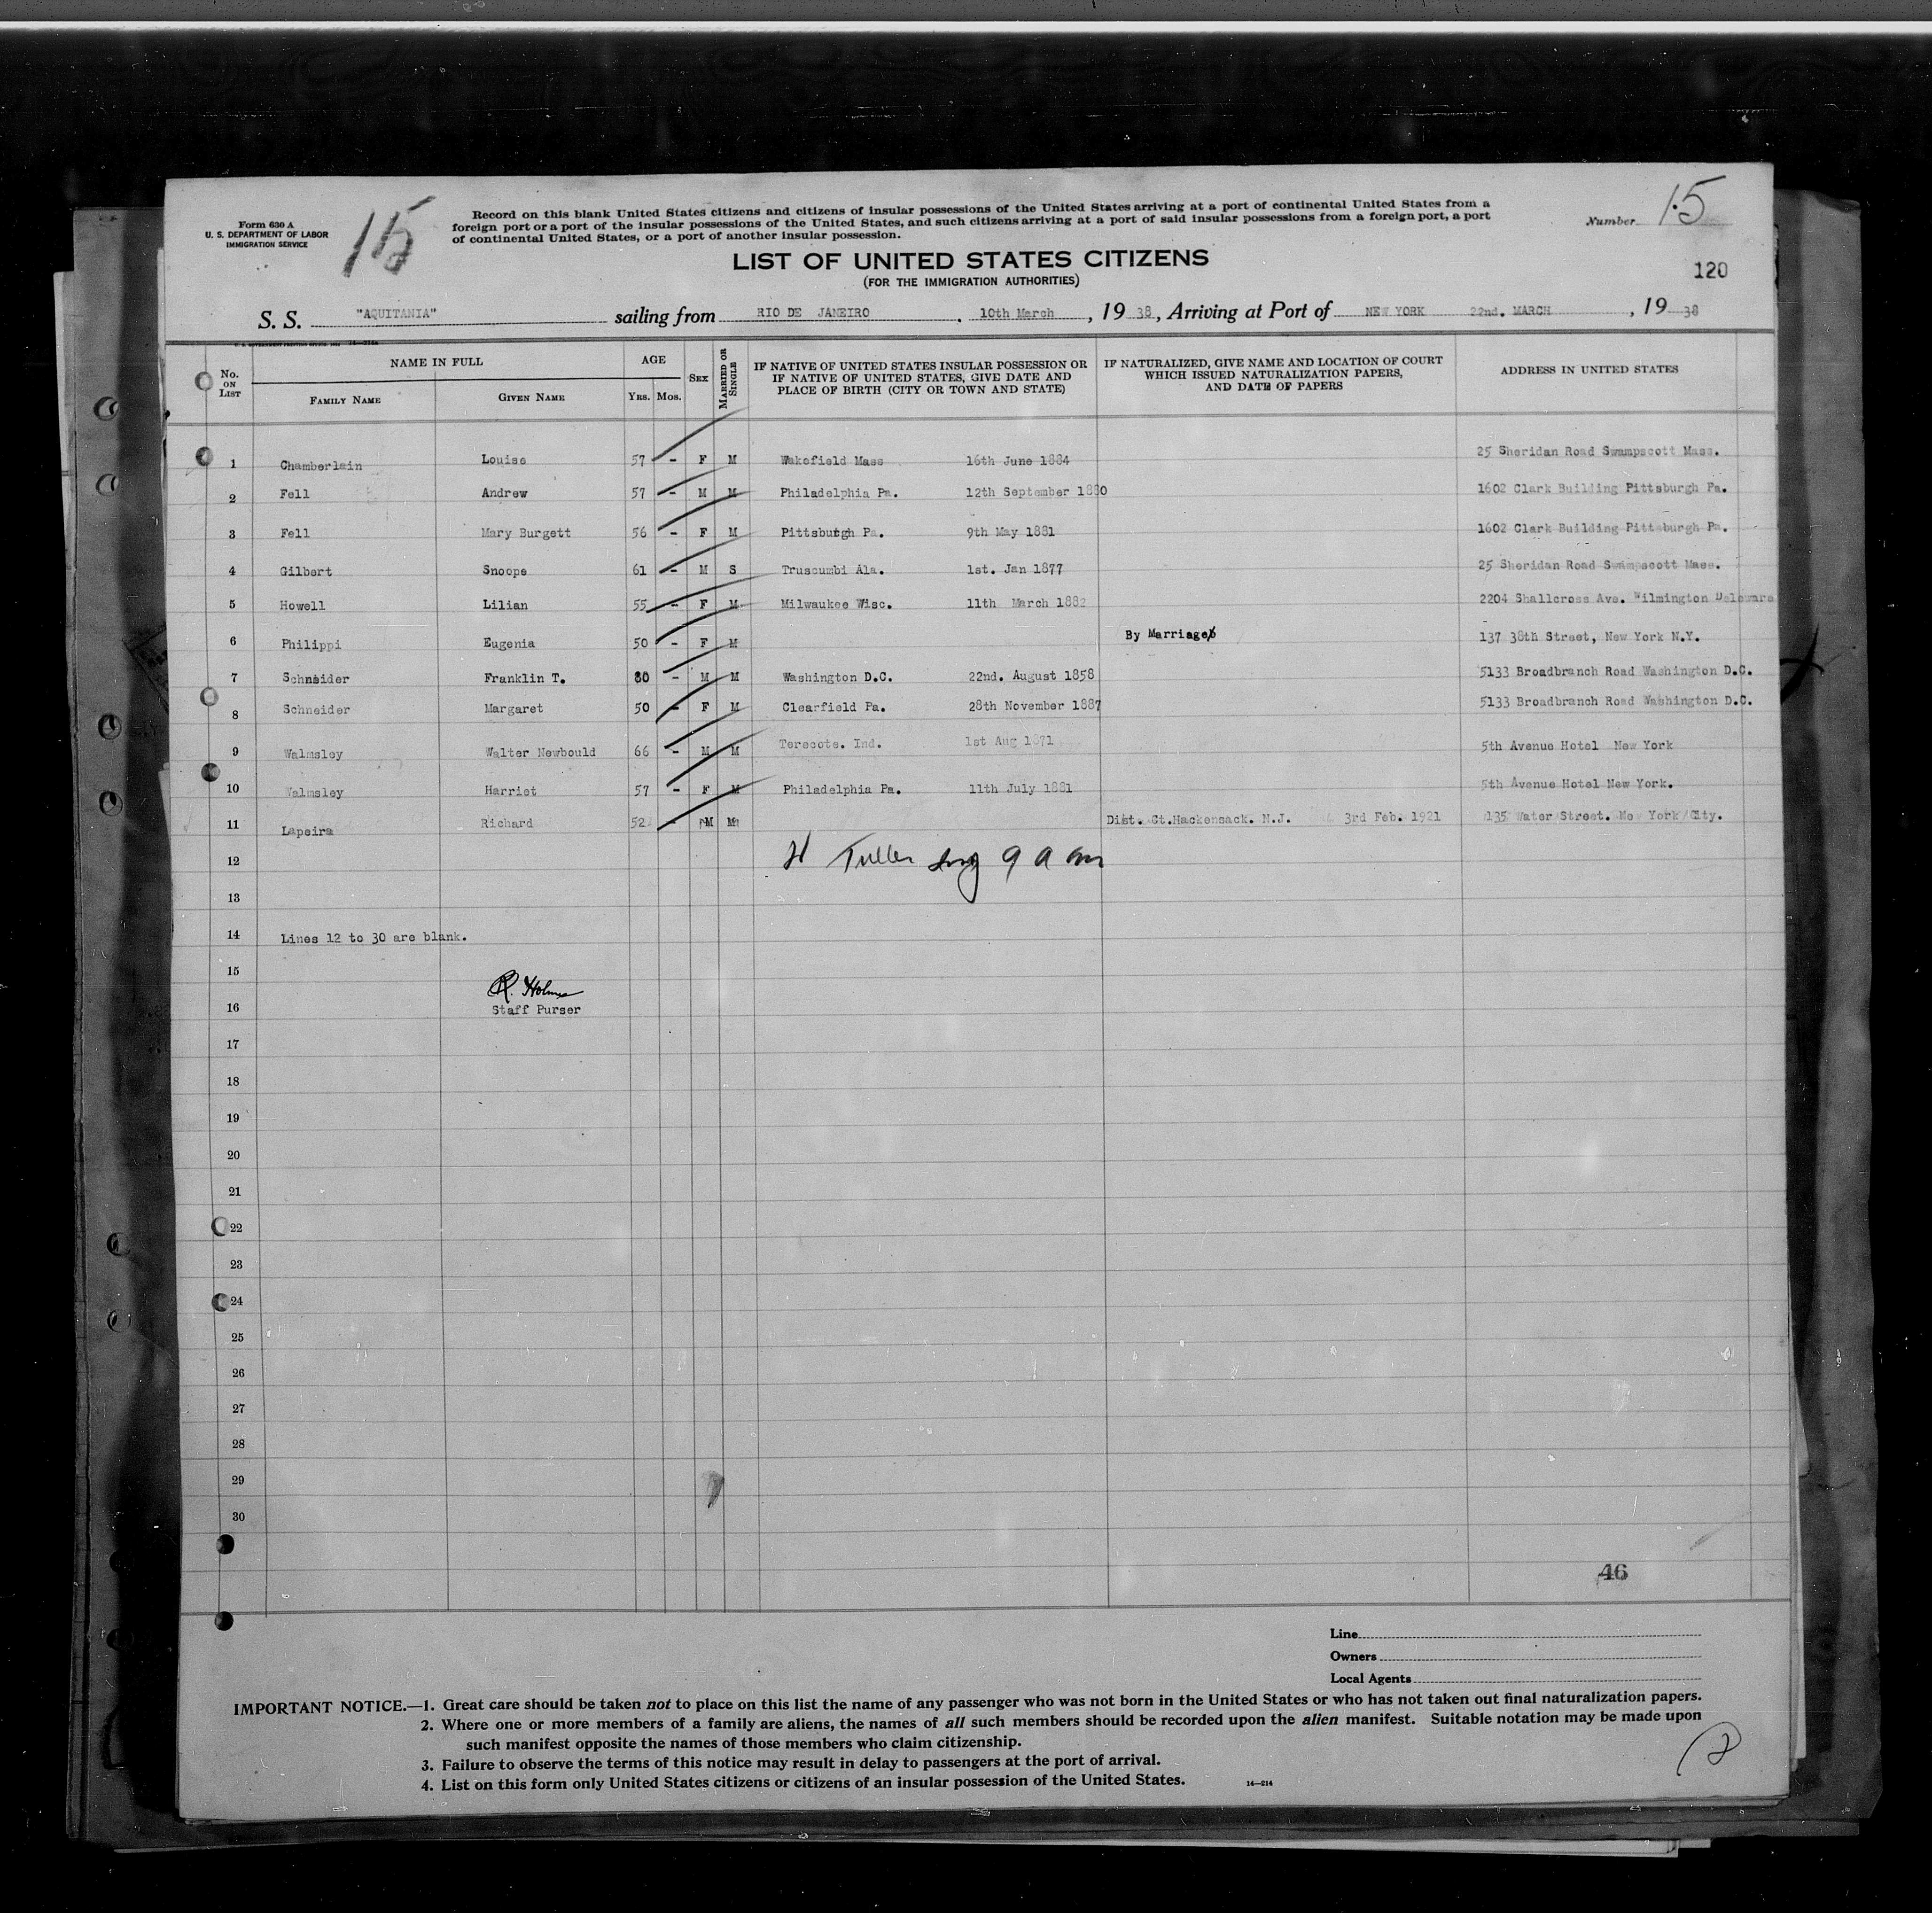 Form 630 A
U. S. DEPARTMENT OF LABOR
IMMIGRATION SERVICE
15
Record on this blank United States citizens and citizens of insular possessions of the United States arriving at a port of continental United States from a
foreign port or a port of the insular possessions of the United States, and such citizens arriving at a port of said insular possessions from a foreign port, a port
of continental United States, or a port of another insular possession.
Number 15
LIST OF UNITED STATES CITIZENS
(FOR THE IMMIGRATION AUTHORITIES)
120
S. S. "AQUITANIA" sailing from RIO DE JANEIRO, 10th March, 1938, Arriving at Port of NEW YORK 22nd. MARCH, 1938
No. ON LIST NAME IN FULL FAMILY NAME GIVEN NAME AGE YRS. MOS. SEX MARRIED OR SINGLE IF NATIVE OF UNITED STATES INSULAR POSSESSION OR IF NATIVE OF UNITED STATES, GIVE DATE AND PLACE OF BIRTH (CITY OR TOWN AND STATE) IF NATURALIZED, GIVE NAME AND LOCATION OF COURT WHICH ISSUED NATURALIZATION PAPERS, AND DATE OF PAPERS ADDRESS IN UNITED STATES
1 Chamberlain Louise 57 - F M Wakefield Mass 16th June 1884 25 Sheridan Road Swampscott Mass.
2 Fell Andrew 57 - M M Philadelphia Pa. 12th September 1880 1602 Clark Building Pittsburgh Pa.
3 Fell Mary Burgett 56 - F M Pittsburgh Pa. 9th May 1881 1602 Clark Building Pittsburgh Pa.
4 Gilbert Snoope 61 - M S Truscumbi Ala. 1st. Jan 1877 25 Sheridan Road Swampscott Mass.
5 Howell Lilian 55 - F M Milwaukee Wisc. 11th March 1882 2204 Shallcross Ave. Wilmington Delaware
6 Philippi Eugenia 50 - F M By Marriage 137 38th Street, New York N.Y.
7 Schneider Franklin T. 80 - M M Washington D.C. 22nd. August 1858 5133 Broadbranch Road Washington D.C.
8 Schneider Margaret 50 - F M Clearfield Pa. 28th November 1887 5133 Broadbranch Road Washington D.C.
9 Walmsley Walter Newbould 66 - M M Terecote. Ind. 1st Aug 1871 5th Avenue Hotel New York
10 Walmsley Harriet 57 - F M Philadelphia Pa. 11th July 1881 5th Avenue Hotel New York.
11 Lapeira Richard 52 - M M Dist. Ct.Hackensack. N.J. 3rd Feb. 1921 135 Water Street. New York City.
12 H Tuller 9 a m
13
14 Lines 12 to 30 are blank.
15 R. Holmes
16 Staff Purser
17
18
19
20
21
22
23
24
25
26
27
28
29
30
46
Line
Owners
Local Agents
IMPORTANT NOTICE.—1. Great care should be taken not to place on this list the name of any passenger who was not born in the United States or who has not taken out final naturalization papers.
2. Where one or more members of a family are aliens, the names of all such members should be recorded upon the alien manifest. Suitable notation may be made upon
such manifest opposite the names of those members who claim citizenship.
3. Failure to observe the terms of this notice may result in delay to passengers at the port of arrival.
4. List on this form only United States citizens or citizens of an insular possession of the United States.
14—214